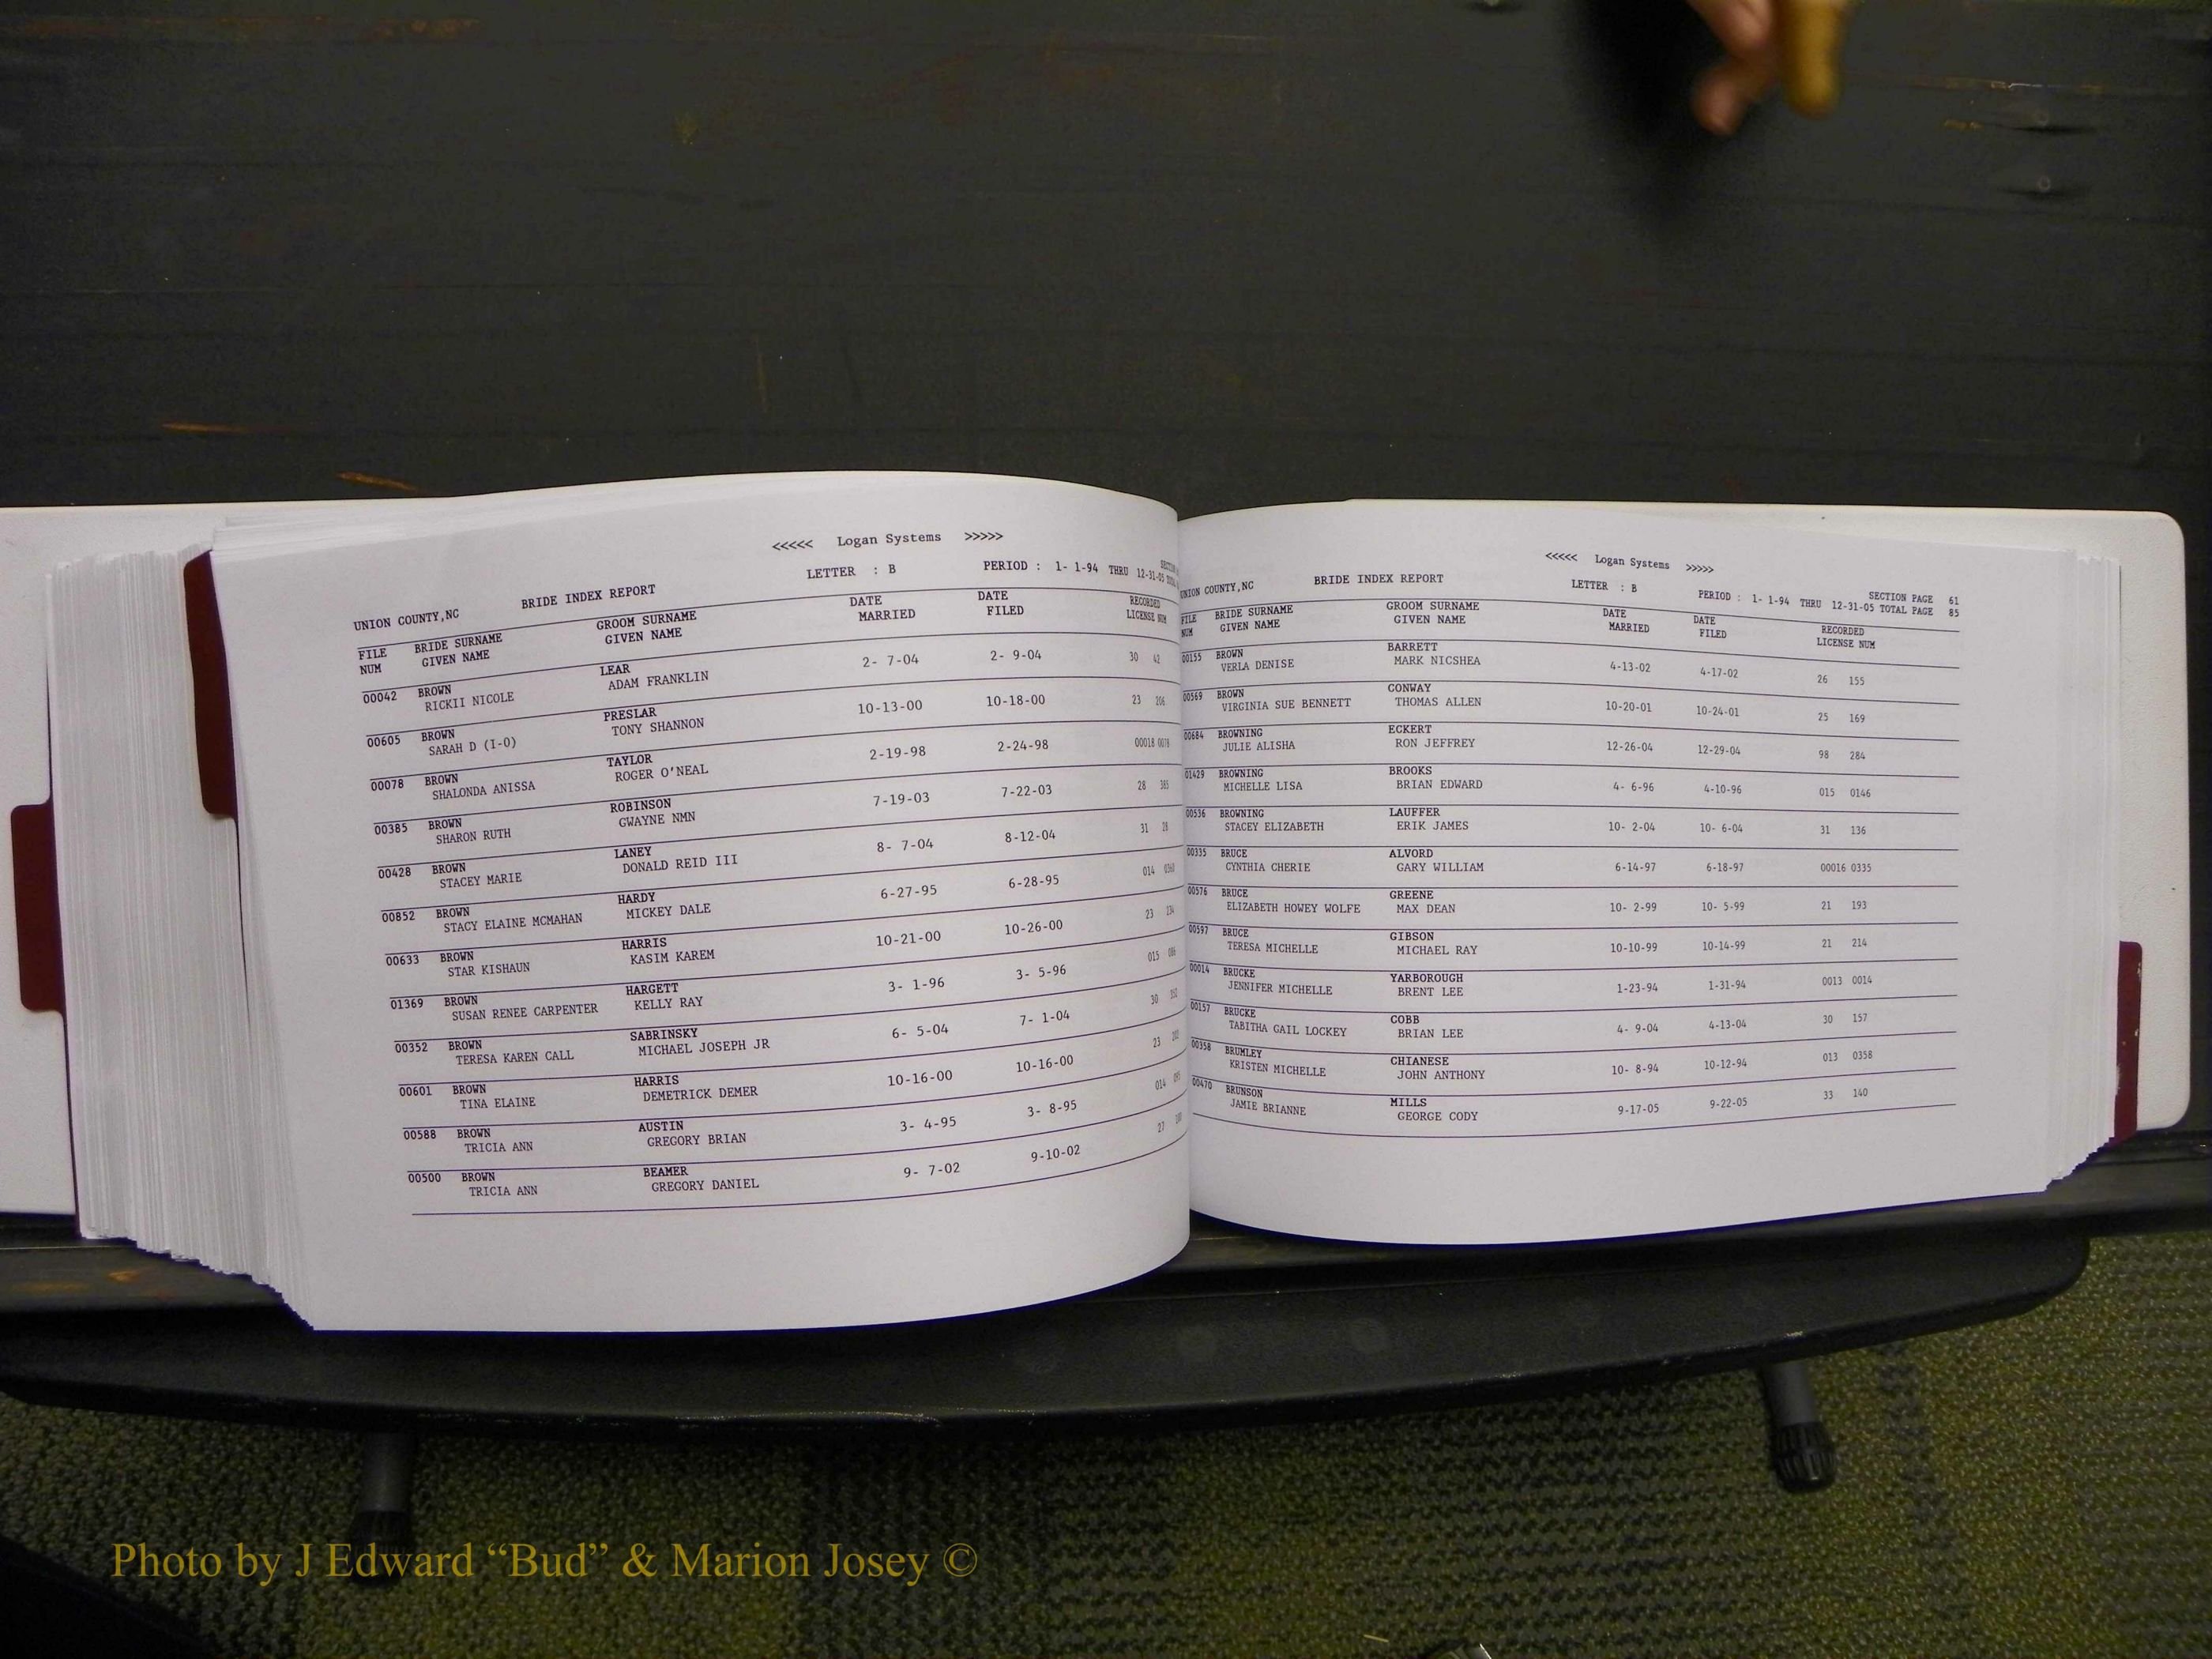 <<<<< Logan Systems >>>>>
UNION COUNTY,NC BRIDE INDEX REPORT LETTER : B PERIOD : 1- 1-94 THRU 12-31-05
FILE BRIDE SURNAME GROOM SURNAME DATE DATE RECORDED
NUM GIVEN NAME GIVEN NAME MARRIED FILED LICENSE NUM
00042 BROWN LEAR 2- 7-04 2- 9-04 30 42
RICKII NICOLE ADAM FRANKLIN
00605 BROWN PRESLAR 10-13-00 10-18-00 23 206
SARAH D (I-0) TONY SHANNON
00078 BROWN TAYLOR 2-19-98 2-24-98 00018 0078
SHALONDA ANISSA ROGER O'NEAL
00385 BROWN ROBINSON 7-19-03 7-22-03 28 385
SHARON RUTH GWAYNE NMN
00428 BROWN LANEY 8- 7-04 8-12-04 31 28
STACEY MARIE DONALD REID III
00852 BROWN HARDY 6-27-95 6-28-95 014
STACY ELAINE MCMAHAN MICKEY DALE
00633 BROWN HARRIS 10-21-00 10-26-00 23 234
STAR KISHAUN KASIM KAREM
01369 BROWN HARGETT 3- 1-96 3- 5-96 015
SUSAN RENEE CARPENTER KELLY RAY
00352 BROWN SABRINSKY 6- 5-04 7- 1-04 30 352
TERESA KAREN CALL MICHAEL JOSEPH JR
00601 BROWN HARRIS 10-16-00 10-16-00 23 202
TINA ELAINE DEMETRICK DEMER
00588 BROWN AUSTIN 3- 4-95 3- 8-95 014
TRICIA ANN GREGORY BRIAN
00500 BROWN BEAMER 9- 7-02 9-10-02 27
TRICIA ANN GREGORY DANIEL
<<<<< Logan Systems >>>>>
UNION COUNTY,NC BRIDE INDEX REPORT LETTER : B PERIOD : 1- 1-94 THRU 12-31-05 SECTION PAGE 61
TOTAL PAGE 85
FILE BRIDE SURNAME GROOM SURNAME DATE DATE RECORDED
NUM GIVEN NAME GIVEN NAME MARRIED FILED LICENSE NUM
00155 BROWN BARRETT 4-13-02 4-17-02 26 155
VERLA DENISE MARK NICSHEA
00569 BROWN CONWAY 10-20-01 10-24-01 25 169
VIRGINIA SUE BENNETT THOMAS ALLEN
00684 BROWNING ECKERT 12-26-04 12-29-04 98 284
JULIE ALISHA RON JEFFREY
01429 BROWNING BROOKS 4- 6-96 4-10-96 015 0146
MICHELLE LISA BRIAN EDWARD
00536 BROWNING LAUFFER 10- 2-04 10- 6-04 31 136
STACEY ELIZABETH ERIK JAMES
00335 BRUCE ALVORD 6-14-97 6-18-97 00016 0335
CYNTHIA CHERIE GARY WILLIAM
00576 BRUCE GREENE 10- 2-99 10- 5-99 21 193
ELIZABETH HOWEY WOLFE MAX DEAN
00597 BRUCE GIBSON 10-10-99 10-14-99 21 214
TERESA MICHELLE MICHAEL RAY
00014 BRUCKE YARBOROUGH 1-23-94 1-31-94 0013 0014
JENNIFER MICHELLE BRENT LEE
00157 BRUCKE COBB 4- 9-04 4-13-04 30 157
TABITHA GAIL LOCKEY BRIAN LEE
00358 BRUMLEY CHIANESE 10- 8-94 10-12-94 013 0358
KRISTEN MICHELLE JOHN ANTHONY
00470 BRUNSON MILLS 9-17-05 9-22-05 33 140
JAMIE BRIANNE GEORGE CODY
Photo by J Edward “Bud” & Marion Josey ©